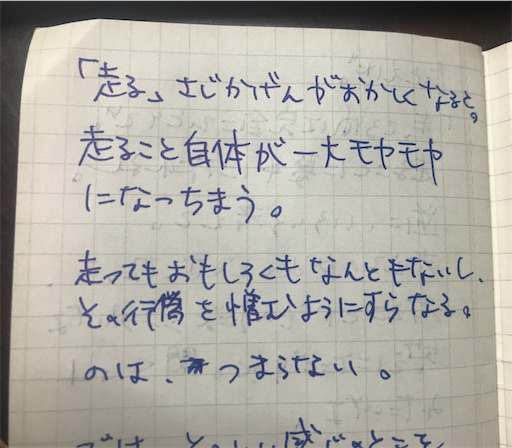 「走る」さじかげんがおかしくなると。
走ること自体が一大モヤモヤ
になっちまう。
走ってもおもしろくもなんともないし、
その行為を憎むようにすらなる。
のは、つまらない。
では、そのいい感じのところを